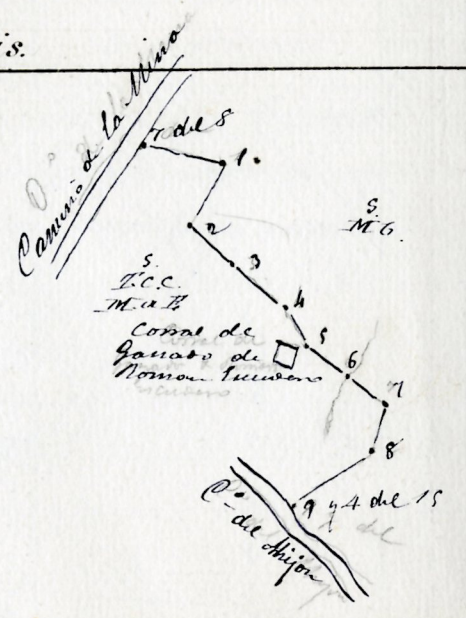 is.
Camino de la Mina
7 del 8
1.
2
3
4
5
6
7
8
9 y 4 del 15
S.
M G.
S.
I. C. C.
Corral de
Ganado de
Roman Escudero
Co. del Mijon